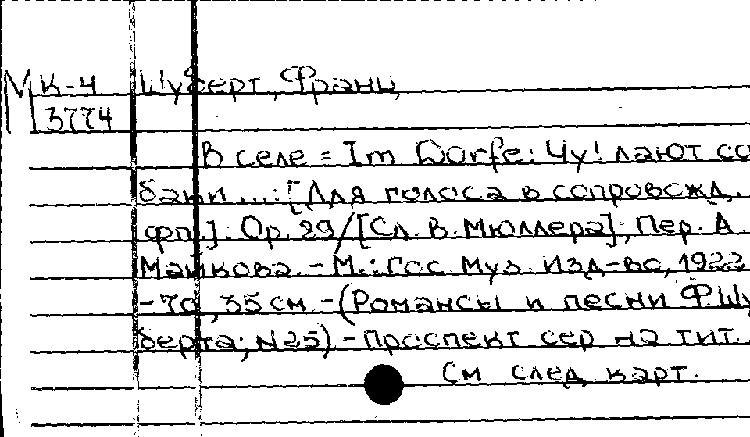 МК-4 Шуберт, Франц
3774
В селе = Im Dorfe: Чу! лают со
баки...: [Для голоса в сопровожд.
фп.]. Ор. 29/[Сл. В. Мюллера]; Пер. А
Майкова. - М.: Гос муз. изд-во, 1922
-7с, 35 см. - (Романсы и песни Ф. Шу
берта; N25) - Проспект сер на тит.
См след карт.